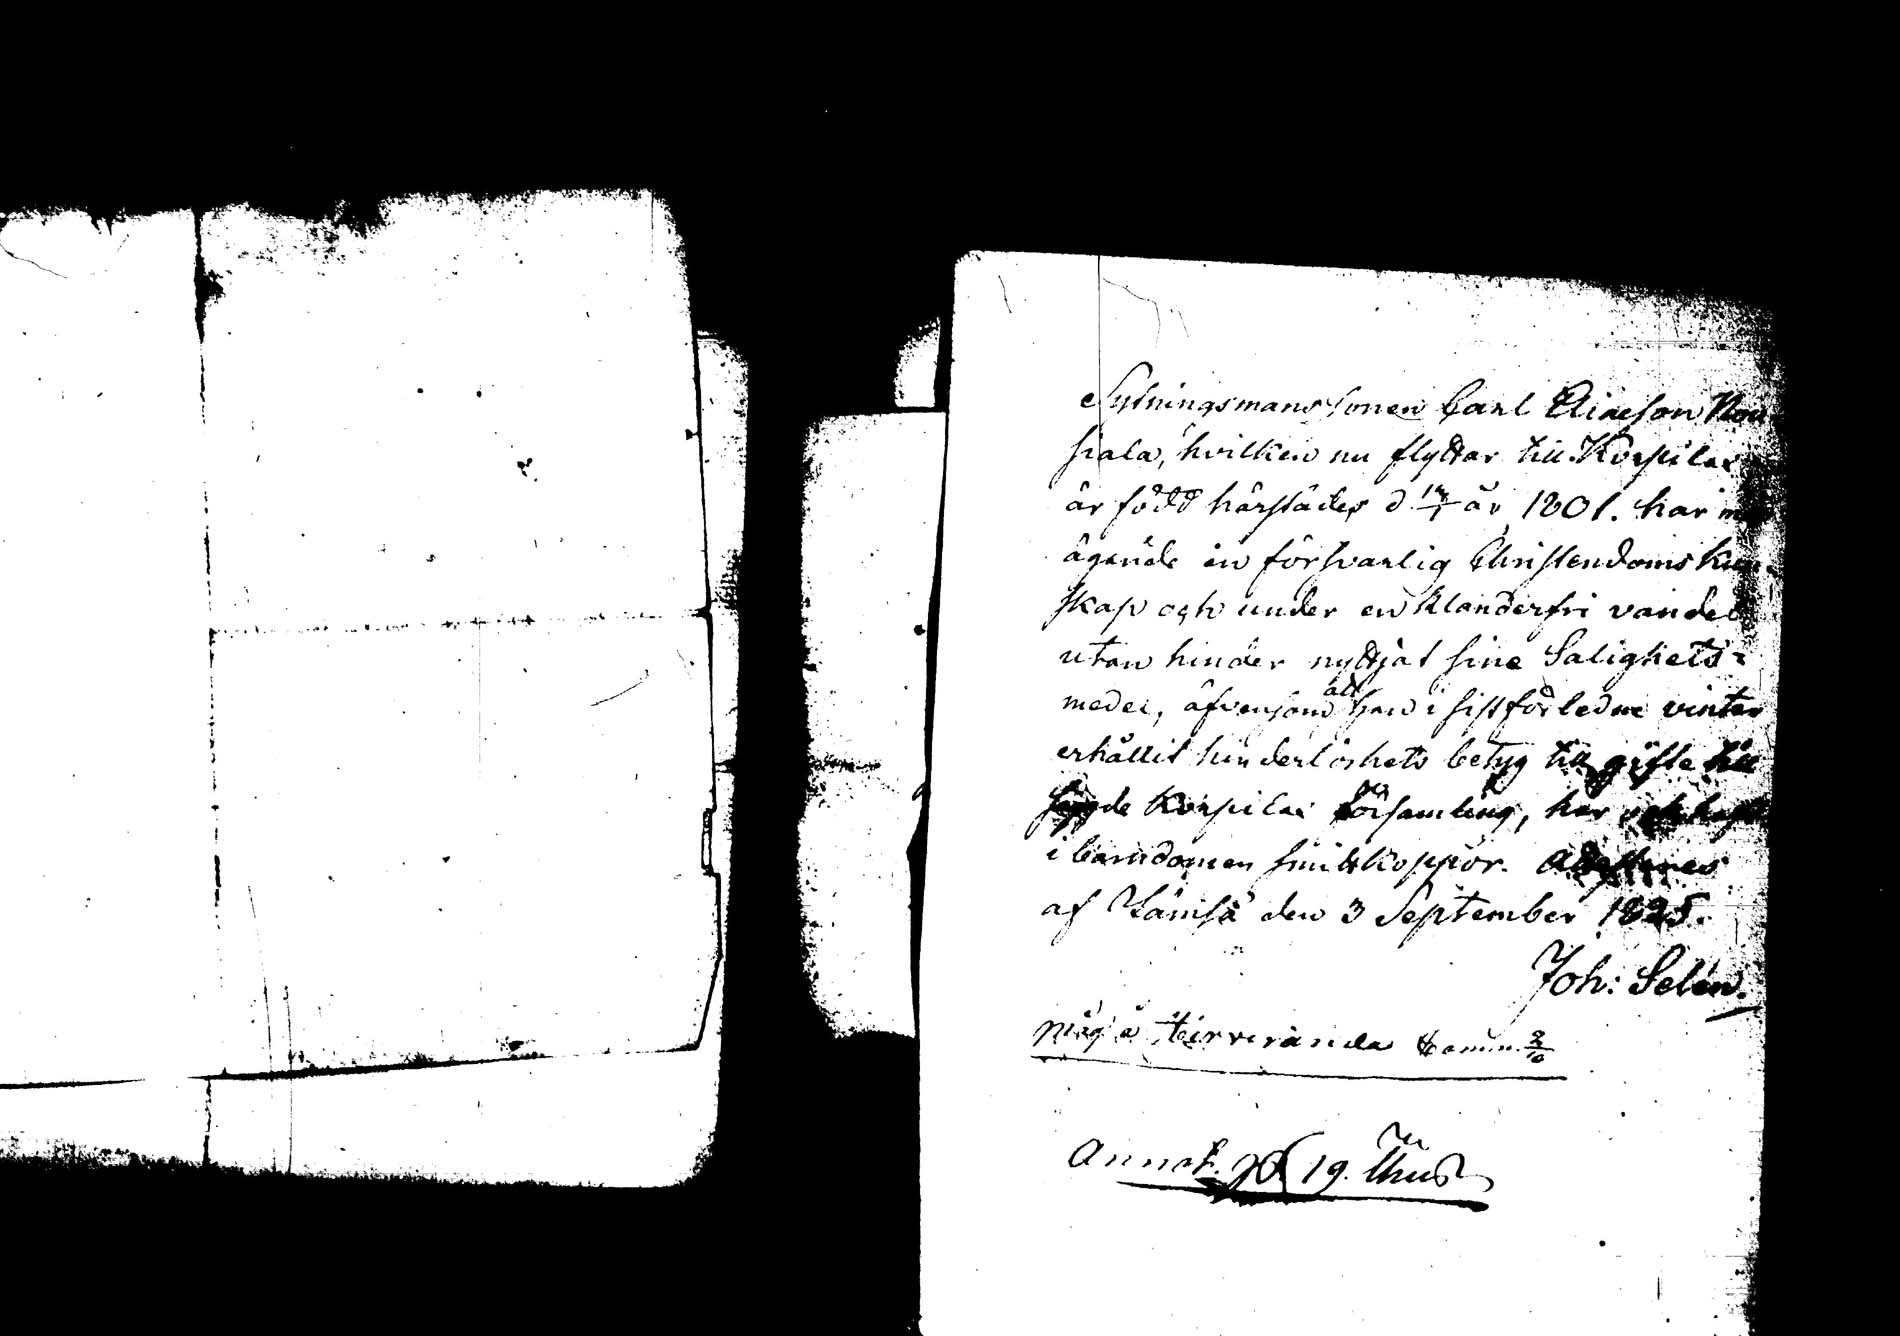 Sytningsmans sonen Carl Eliaeson Nou
siala, hvilken nu flyttar till Korpilax
är född härstädes d år 1801. har
ägande en försvarlig Christendoms kun-
skap och under en klanderfri vandel
utan hinder nyttjat sine Salighets=
medel, äfvensom att han i sistförledne vinter
erhållit hinderlöshets betyg till gifte till
Korpilax församling, har
i barndomen haft koppor. Attesteres
af Jämsä den 3 September 1825.
Joh: Selén.
Måg å Hamn. 2/10
Annot. 20 19. Thus